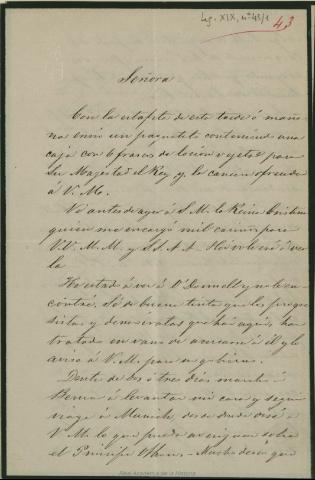 Leg. XIX, nº 43/1
43
Señora
Con la estafeta de esta tarde ó maña-
na envio un paquetito conteniendo una
caja con 6 frascos de locion vejetal para
Su Magestad el Rey y la
á V. M.
Ví antes de ayer á S. M. la Reina Cristina
quien me encargó mil cariños para
VV. M. M. y S.S. A. A. Hoi volveré á ver
la
He estado á ver á O'Donnell y no le en-
contré. Sé de buena tinta que los progre-
sistas y demócratas que hai aqui, han
tratado en vano de acercarse á él y lo
aviso á V. M. para su gobierno.
Dentro de dos ó tres dias marcho á
Berna á levantar mi casa y seguir
viage á Munich, desde donde diré á
V. M. lo que pueda averiguar sobre
el Principe Othon. - Mucho deseo que
Real Academia de la Historia